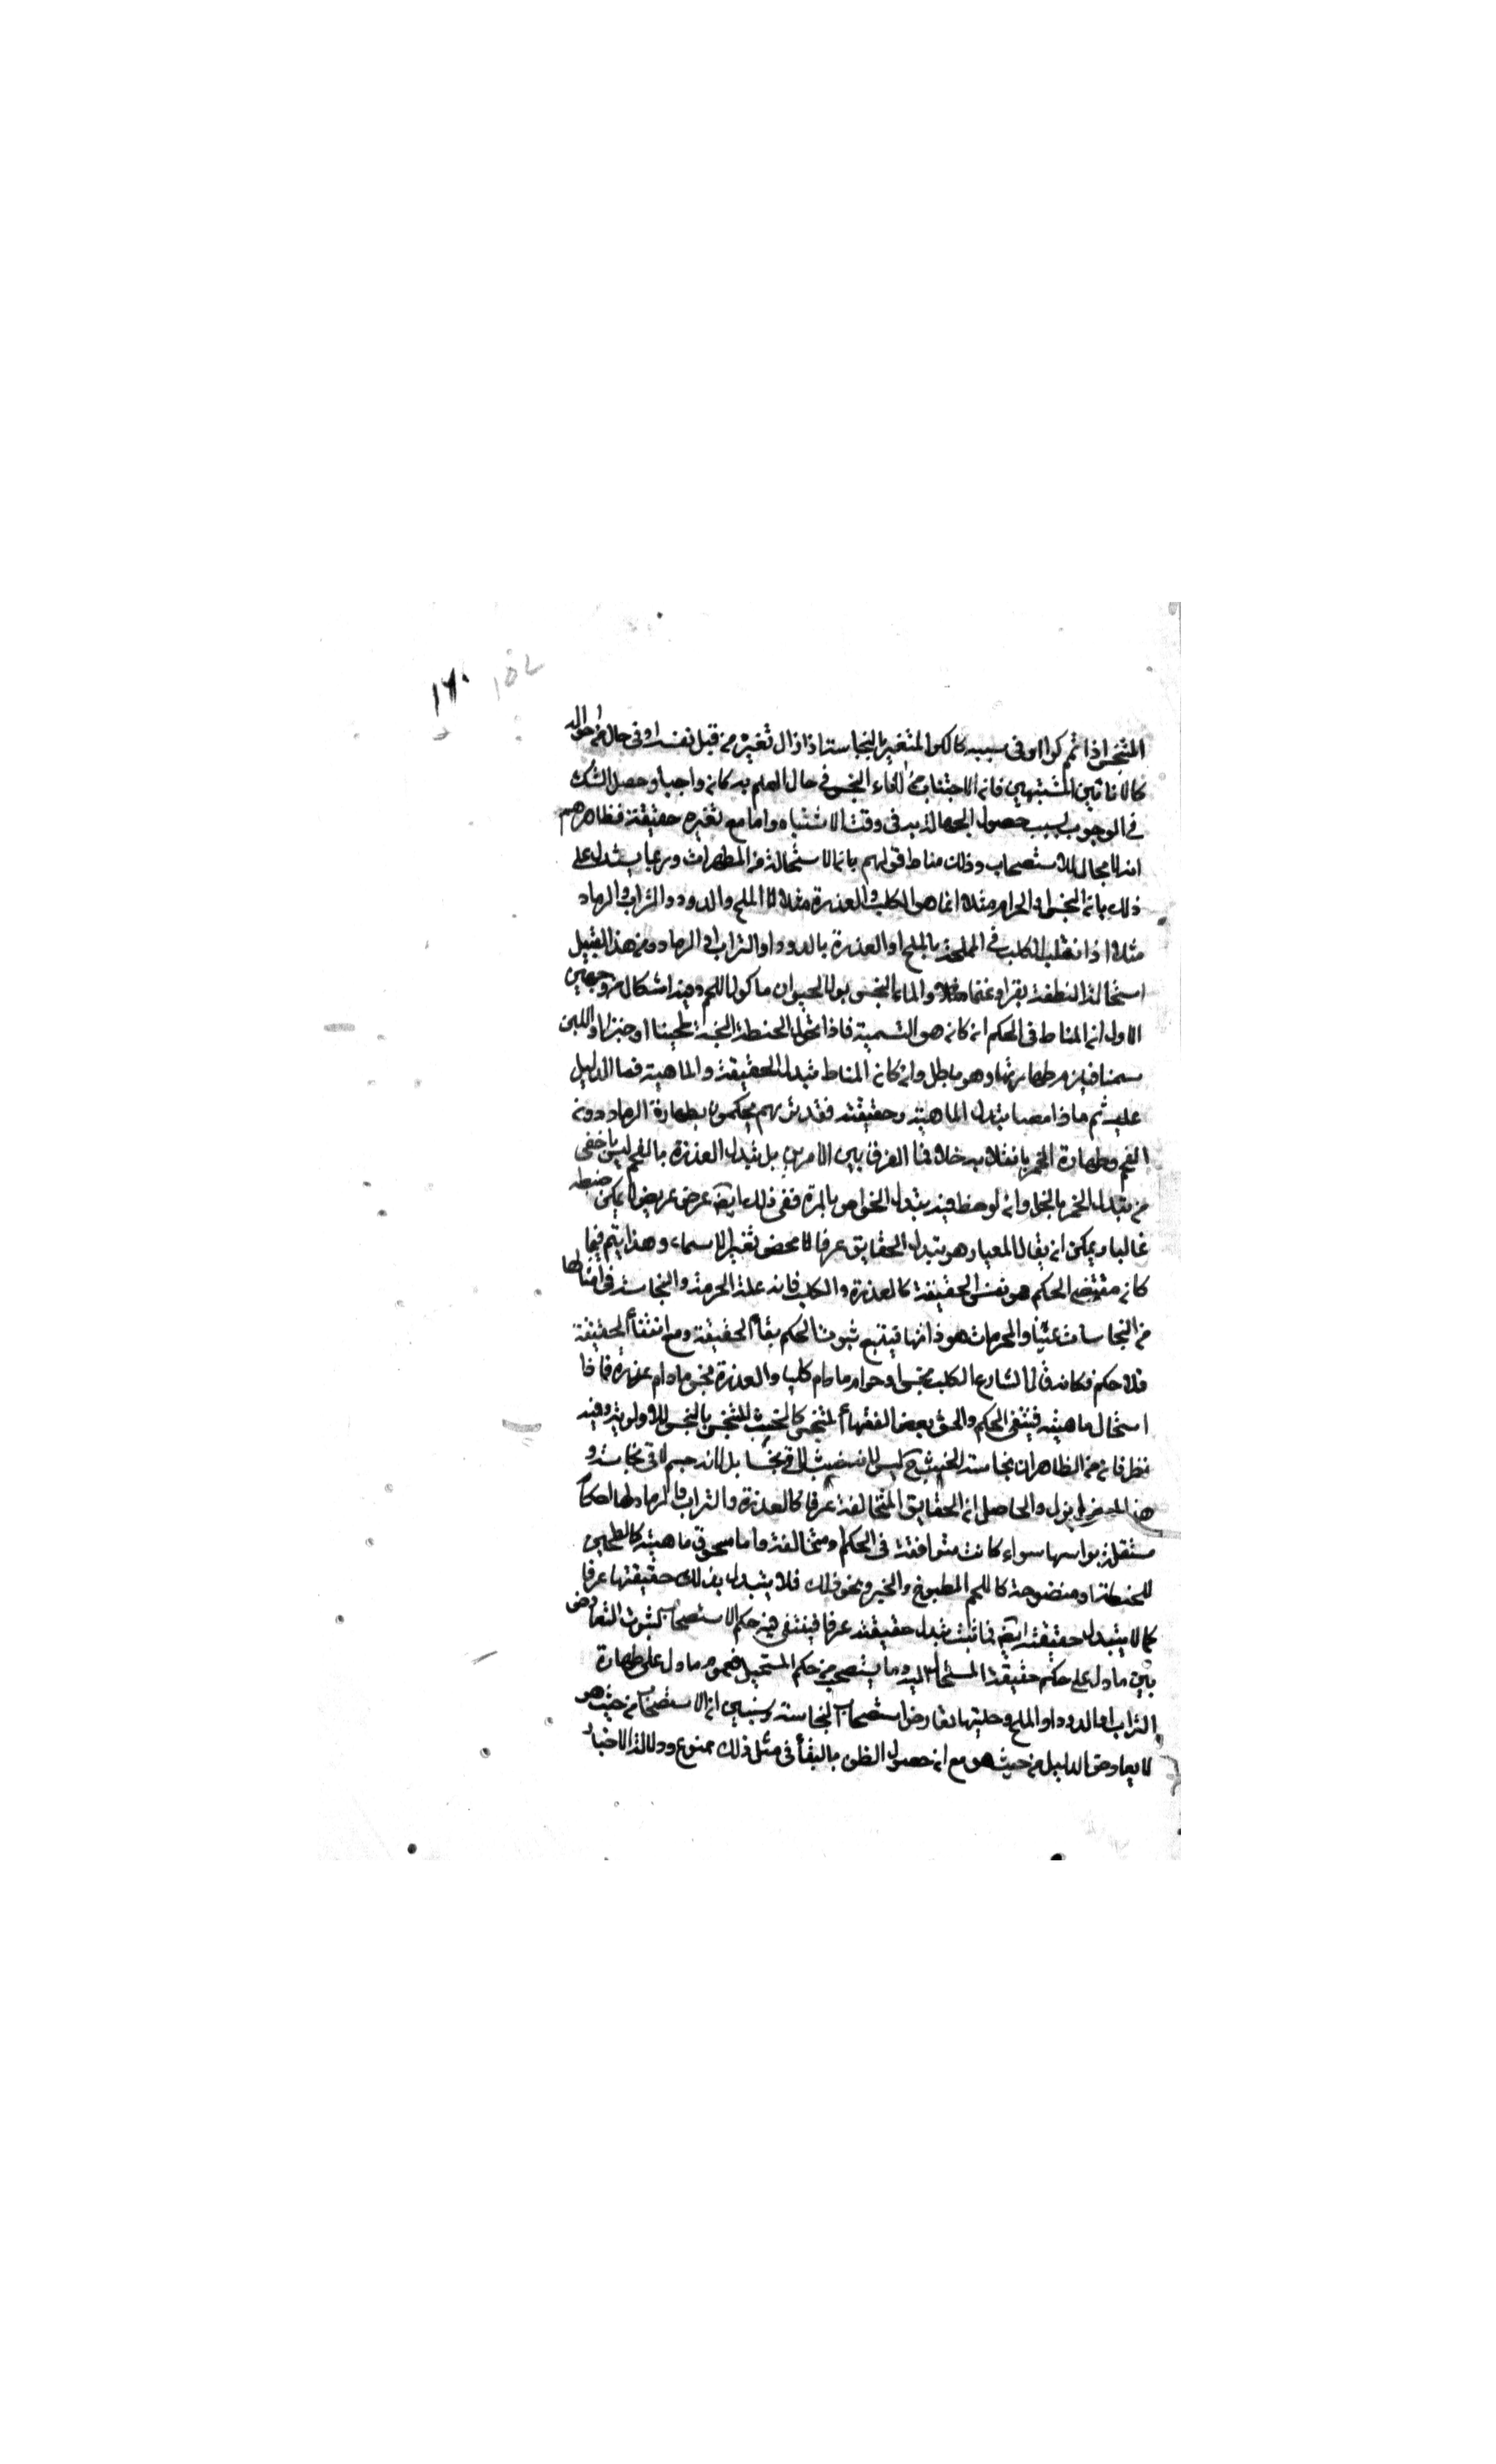 ١٦٠ ١٥٢
المتنجس اذا تمم كرا او في سببه كالكر المتغير بالنجاسة اذا زال تغيره من قبل نفسه او في حال من احواله
كالانائين المشتبهين فانه الاجتناب من الاناء النجس في حال العلم به كان واجبا وحصل الشك
في الوجوب بسبب حصول الجهالة به في وقت الاشتباه واما مع تغيره حقيقة فظاهرهم
انه لا مجال للاستصحاب وذلك مناط قولهم بان الاستحالة من المطهرات وربما يستدل على
ذلك بان النجس او الحرام مثلا انما هو الكلب والعذرة مثلا لا الملح والدود والتراب والرماد
مثلا اذا نقلب الكلب في المملحة بالملح او العذرة بالدود او التراب او الرماد ومن هذا القبيل
استحالة النطفة بقرا وغنما مثلا والماء النجس بولا لحيوان ماكول اللحم وفيه اشكال من وجهين
الاول ان المناط في الحكم ان كان هو التسمية فاذا تحول الحنطة النجسة طحينا او خبزا او اللبن
سمنا فيلزم طهارتها وهو باطل وان كان المناط تبدل الحقيقة والماهية فما الدليل
عليه ثم ماذا معيار تبدل الماهية وحقيقته فقد تريهم يحكمون بطهارة الرماد دون
الفحم وطهارة الخمر بانقلابه خلا فما الفرق بين الامرين بل تبدل العذرة بالفحم ليس باخفى
من تبدل الخمر بالخل وان لوحظ فيه تبدل الخواص بالمرة ففي ذلك ايضا عرض عريض لا يمكن ضبطه
غالبا ويمكن ان يقال المعيار هو تبدل الحقايق عرفا لا محض تغير الاسماء وهذا يتم فيما
كان مقتضى الحكم هو نفس الحقيقة كالعذرة والكلب فانه علة الحرمة والنجاسة في امثالها
من النجاسات عينا والمحرمات هو ذاتها فيتبع ثبوت الحكم بقاء الحقيقة ومع انتفاء الحقيقة
فلا حكم فكانه قال الشارع الكلب نجس او حرام مادام كلبا والعذرة نجس مادام عذرة فاذا
استحال ماهيته فينتفي الحكم والحق بعض الفقهاء المتنجس كالخشب المتنجس بالنجس للاولوية وفيه
نظر فان من الظاهر ان نجاسة الخشب ح ليس لانه خشب لاقى نجسا بل لانه جسم لاقى نجاسة و
هذا المعنى لم يزل والحاصل ان الحقايق المتخالفة عرفا كالعذرة والتراب والرماد لها احكام
مستقلة براسها سواء كانت متوافقة في الحكم او متخالفة واما مسحوق ماهيته كالطحين
للحنطة او منضوجة كاللحم المطبوخ والخبز ونحو ذلك فلا يتبدل بذلك حقيقتها عرفا
كما لا يتبدل حقيقته ايضا فما ثبت تبدل حقيقته عرفا فينتفي فيه حكم الاستصحاب لثبوت التعارض
بين ما دل على حكم حقيقة المستحال اليه وما يستصحب من حكم المستحيل فعموم ما دل على طهارة
التراب او الدود او الملح وحليتها يعارض استصحاب النجاسة وسنبين ان الاستصحاب من حيث هو
لا يعارض الدليل من حيث هو مع ان حصول الظن بالبقاء في مثل ذلك ممنوع ودلالة الاخبار